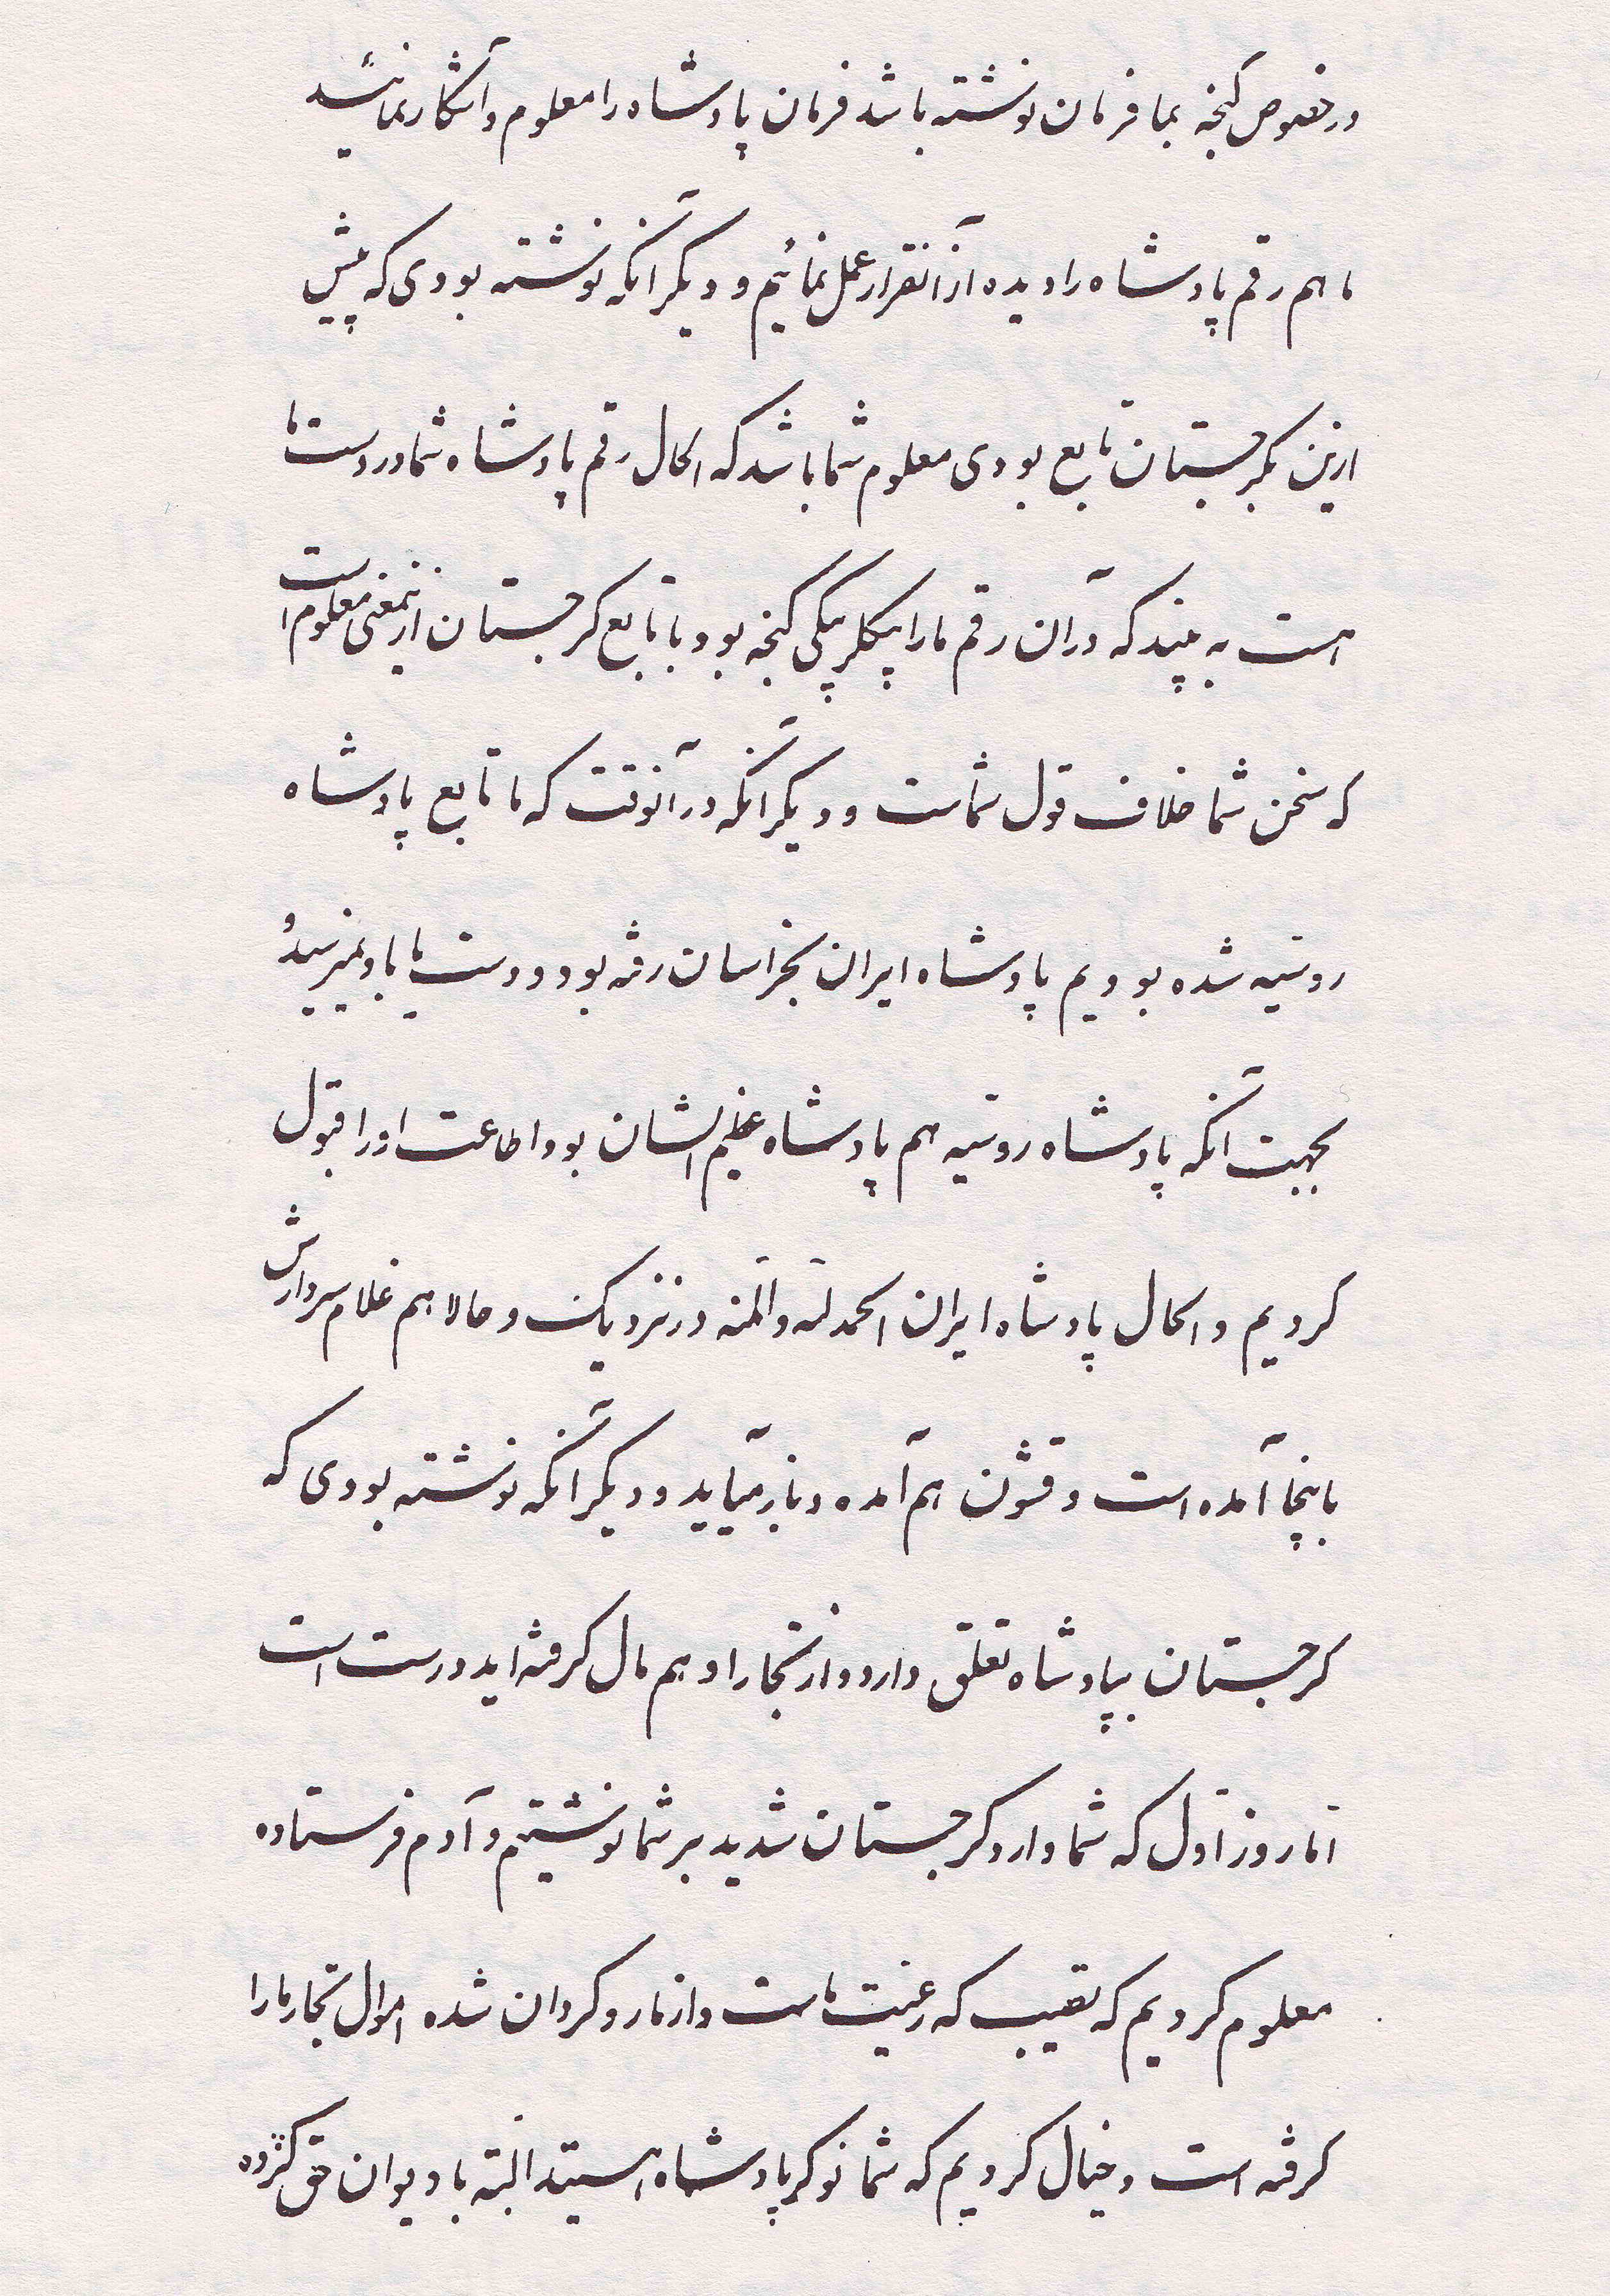 در خصوص کنجه بما فرمان نوشته باشد فرمان پادشاه را معلوم و آشکار نمائید
ما هم رقم پادشاه را دیده از آنقرار عمل نمائیم و دیکر آنکه نوشته بودی که پیش
ازین بکرجستان تابع بودی معلوم شما باشد که الحال رقم پادشاه شما در دست ما
است به بینید که در آن رقم ما را بیکلربیکی کنجه بود یا تابع کرجستان ازینمعنی معلوم است
که سخن شما خلاف قول شماست و دیکر آنکه در آنوقت که ما تابع پادشاه
روسیه شده بودیم پادشاه ایران بخراسان رفته بود و دست ما باو نمیرسید و
بجهت آنکه پادشاه روسیه هم پادشاه عظیم الشان بود اطاعت او را قبول
کردیم و الحال پادشاه ایران الحمد لله والمنه در نزدیک و حالا هم غلام سردارش
باینجا آمده است و قشون هم آمده و باز میآید و دیکر آنکه نوشته بودی که
کرجستان بپادشاه تعلق دارد و از تجار او هم مال کرفته اید درست است
اما روز اول که شما وارد کرجستان شدید بر شما نوشتیم و آدم فرستاده
معلوم کردیم که نصیب که رعیت ماست و از ما روکردان شده اموال تجار ما را
کرفته است و خیال کردیم که شما نوکر پادشاه هستید البته با دیوان حق